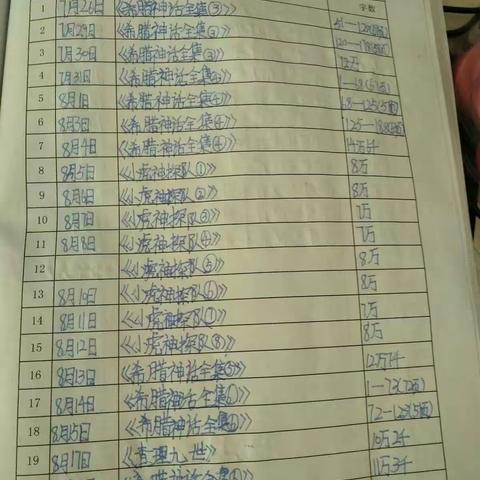 字数
1 7月26日 《希腊神话全集③》
2 7月29日 《希腊神话全集③》
3 7月30日 《希腊神话全集③》
4 7月31日 《希腊神话全集④》
5 8月1日 《希腊神话全集④》
6 8月3日 《希腊神话全集④》
7 8月4日 《希腊神话全集④》
8 8月5日 《小虎神探队①》 8万
9 8月6日 《小虎神探队②》 8万
10 8月7日 《小虎神探队③》 7万
11 8月8日 《小虎神探队④》 7万
12 《小虎神探队⑤》 8万
13 8月10日 《小虎神探队⑥》 8万
14 8月11日 《小虎神探队⑦》 7万
15 8月12日 《小虎神探队⑧》 8万
16 8月13日 《希腊神话全集⑤》
17 8月14日 《希腊神话全集 1—72(72页)
18 8月15日 《希腊神话全集
19 8月17日 《查理九世》 10万2千
《希腊神话全集 11万3千